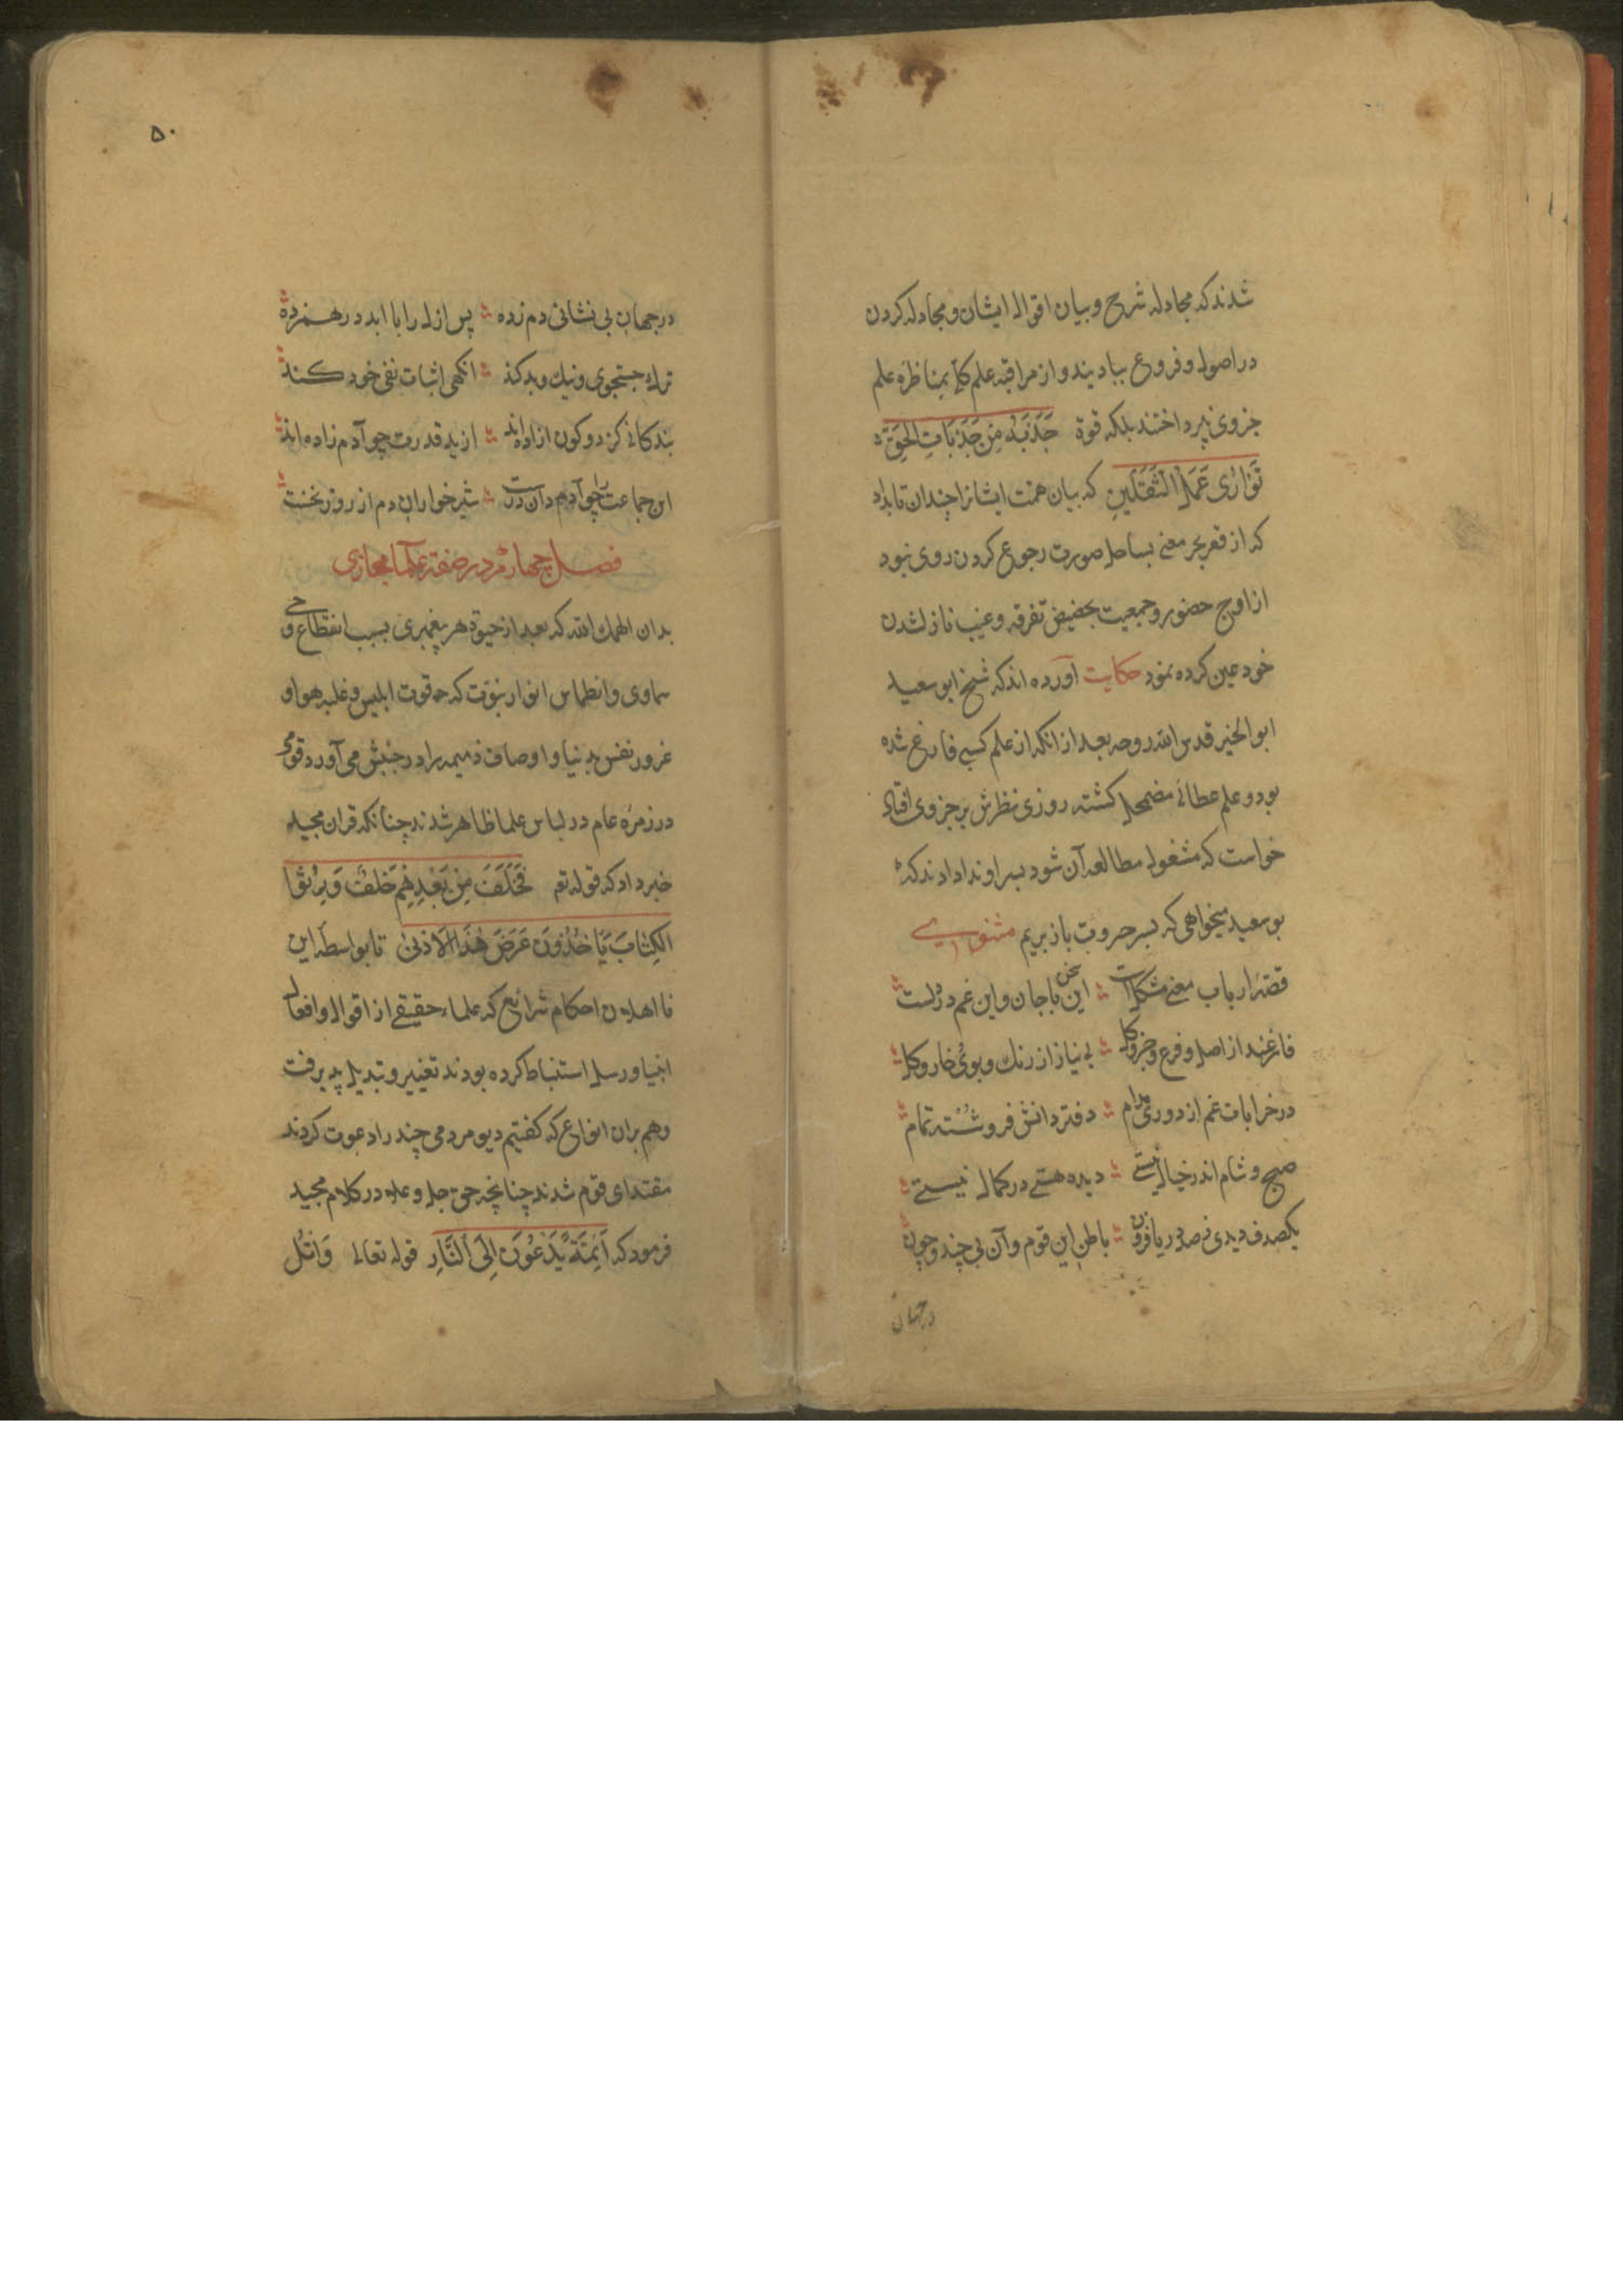 شدند که مجادله شرح و بیان اقوال ایشان و مجادله کردن
در اصول و فروع بیادیند و از مراقبه علم کلی بمناظره علم
جزوی نپرداختند بلکه قوة جَذْبَةٌ مِنْ جَذَبَاتِ الحَقِّ
تَوَازِی عَمَلَ الثَّقَلَیْنِ که بیان همت ایشانرا چندان تاب داد
که از قعر بحر معنی بساحل صورت رجوع کردن روی نبود
از اوج حضور و جمعیت بحضیض تفرقه و غیب نازل شدن
خود عین کرده نمود حکایت آورده اند که شیخ ابو سعید
ابو الخیر قدس الله روحه بعد از انکه از علم کسبی فارغ شده
بود و علم عطائی مضمحل کشته روزی نظرش بر جزوی افتاد
خواست که مشغول مطالعه آن شود بسر او ندا دادند که
بو سعید میخواهی که بسر حروفت باز بریم مثنوی
قصّهٔ ارباب معنی مشکلست این سخن با جان و این غم در دلست
فارغند از اصل و فرع و جزو و کل بی نیاز از رنك و بوی خار و کل
در خرابات غم از دوری مدام دفتر دانش فرو شُسته تمام
صبح و شام اندر خیال نیستی دیده هستی در کمال نیستی
یکصدف دیدی ز صد دریا فزون باطن این قوم و آن بی چند و چون
در جهان
۵۰
در جهان بی نشانی دم زده پس ازل را با ابد در هم زده
ترك جستجوی و نیك و بد کند انکهی اثبات نفی خود کند
بندکانی کز دو کون ازاده اند از ید قدرت چو آدم زاده اند
این جماعت را چو آدم دان درست شیر خواران دم از روز نخست
فصل چهارم در صفت علماء مجازی
بدان الهمك الله که بعد از حیوة هر پیغمبری بسبب انقطاع وحی
سماوی و انطماس انوار نبوّت که قوت ابلیس و غلبه هوا و
غرور نفس بدنیا و اوصاف ذمیمه را در جنبش می آورد قومی
در زمرهٔ عام در لباس علما ظاهر شدند چنانکه قران مجید
خبر داد که قوله تع فَخَلَفَ مِنْ بَعْدِهِمْ خَلْفٌ وَرِثُوا
الکِتابَ یَاخُذُونَ عَرَضَ هٰذَا الاَدْنیٰ تا بواسطه این
نا اهلان احکام شرائع که علماء حقیقی از اقوال و افعال
انبیا و رسل استنباط کرده بودند تغییر و تبدیل پذیرفت
و هم بران انواع که کفتیم دیو مردمی چند را دعوت کردند
مقتدای قوم شدند چنانچه حق جل و علا در کلام مجید
فرمود که اَئِمَّةً یَدْعُونَ اِلَی النَّارِ قوله تعالی وَاتْلُ